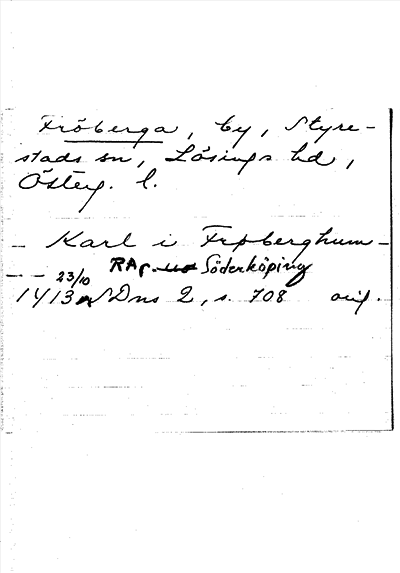 Fröberga, by, Styre-
stads sn, Lösings hd,
Österg. l.
- Karl i Frøberghum -
RAp. Söderköping
-- 23/10
1413 SDns 2, s. 708 orig.